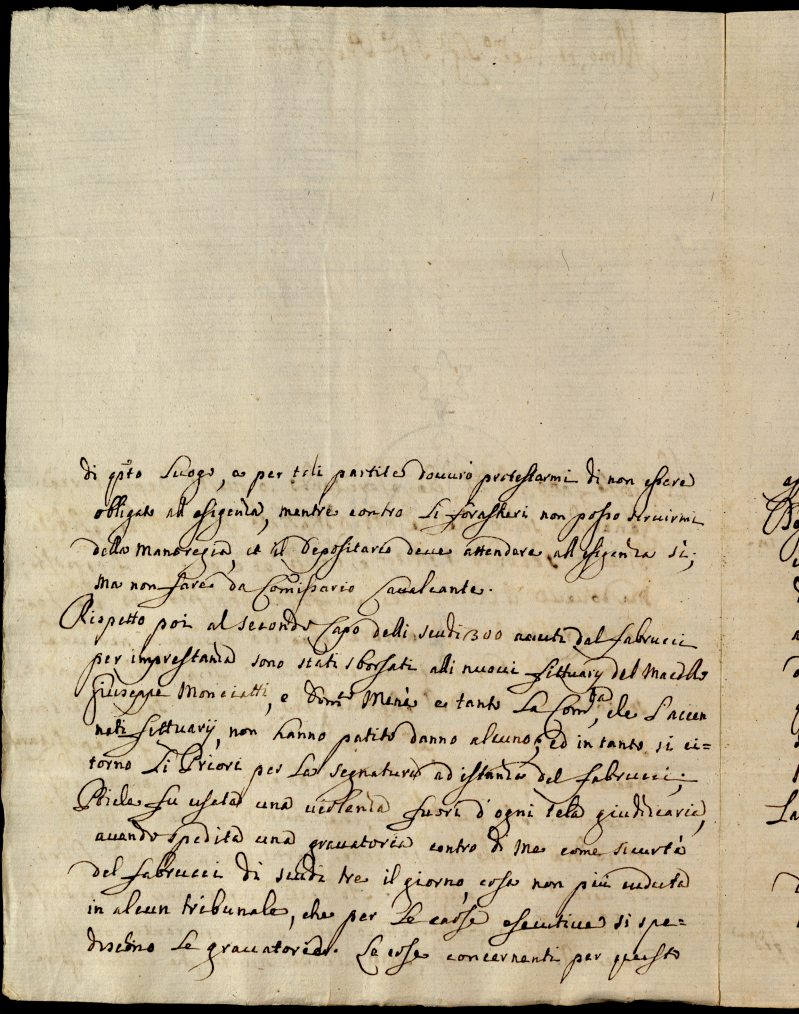 di qsto Luogo, e per tali partite dovurò protestarmi di non essere
obligato all esigenza, mentre contro Li forastieri non posso servirmi
della Manoregia, et il Depositario deve attendere all esigenza sì,
ma non fare da Comissario Cavalcante.
Rispetto poi al secondo Capo delli scudi 300 avuti dal fabrucci
per imprestanza sono stati sborsati alli nuovi fittuary del Macello
Giuseppe Monciatti, e Dom.o Menè e tanto La Com.tà, che L'accen
nati fittuarij, non hanno patito danno alcuno, ed in tanto si ci=
torno Li Priori per La segnatura ad istanza del fabrucci,
Poiche fu usata una violenza fuori d'ogni tela giudiziaria,
avendo spedita una gravatoria contro di me come sicurtà
del fabrucci di scudi tre il giorno, cosa non più veduta
in alcun tribunale, che per Le cause esecutive si spe=
dischino Le gravatorie. Le cose concernenti per questo